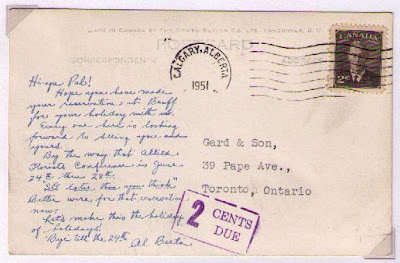 MADE IN CANADA BY THE GOWEN SUTTON CO. LTD. VANCOUVER, B.C.
POSTCARD
CORRESPONDENCE
ADDRESS
CALGARY, ALBERTA
1951
CANADA
2¢
Hi'ya Pal!
Hope you have made
your reservation at Banff
for your holiday with us.
Every one here is looking
forward to seeing you and
yours.
By the way that Allied
Florists Conference is June
24th thru 28th.
"It's later than you think"
Better wire for that reservation
now.
Let's make this the holiday
of holidays!
'Bye till the 24th
Al
Gard & Son,
39 Pape Ave.,
Toronto, Ontario
2 CENTS
DUE